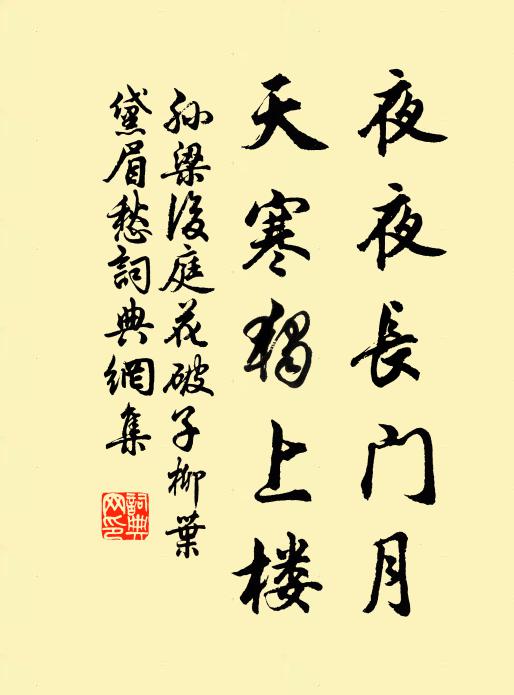 夜夜長门月
天寒獨上楼
孙梁後庭花破子柳葉
黛眉愁詞典網集
詞典
网印